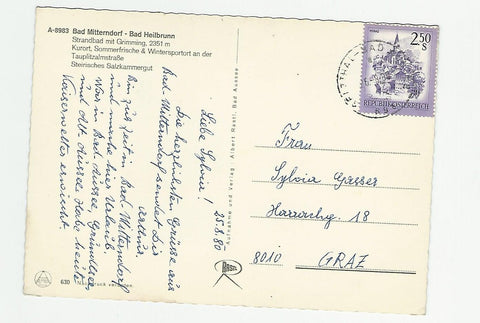 A-8983 Bad Mitterndorf - Bad Heilbrunn
Strandbad mit Grimming, 2351 m
Kurort, Sommerfrische & Wintersportort an der
Tauplitzalmstraße
Steirisches Salzkammergut
25.8.80
Liebe Sylvia!
Die herzlichsten Grüsse aus
Bad-Mitterndorf sendet Dir
Bin zur Zeit in Bad-Mitterndorf
und mache hier Urlaub.
War in Bad Aussee, Grundlsee
und Alt Aussee. Habe heute
Kaiserwetter erwischt.
Aufnahme und Verlag: Albert Rastl, Bad Aussee
630
2.50
S
REPUBLIK ÖSTERREICH
Frau
Sylvia Gasser
18
8010 GRAZ